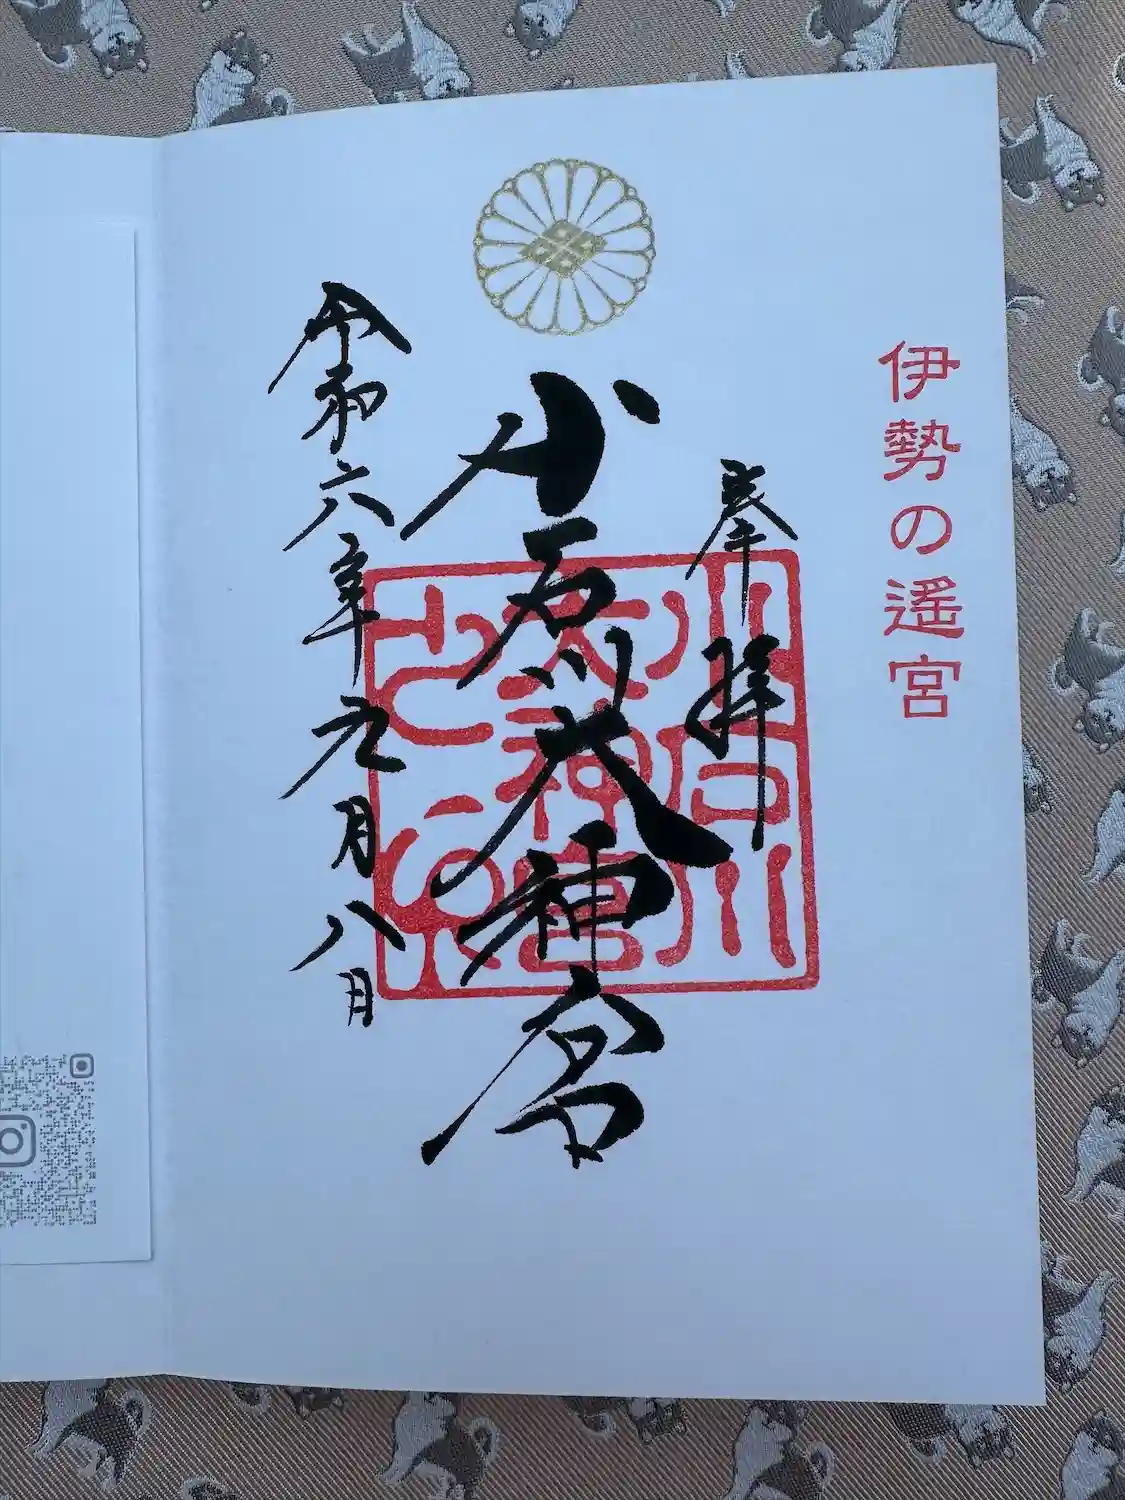 伊勢の遙宮
奉拝
小石川大神宮
令和六年九月八日
小石川
大神宮